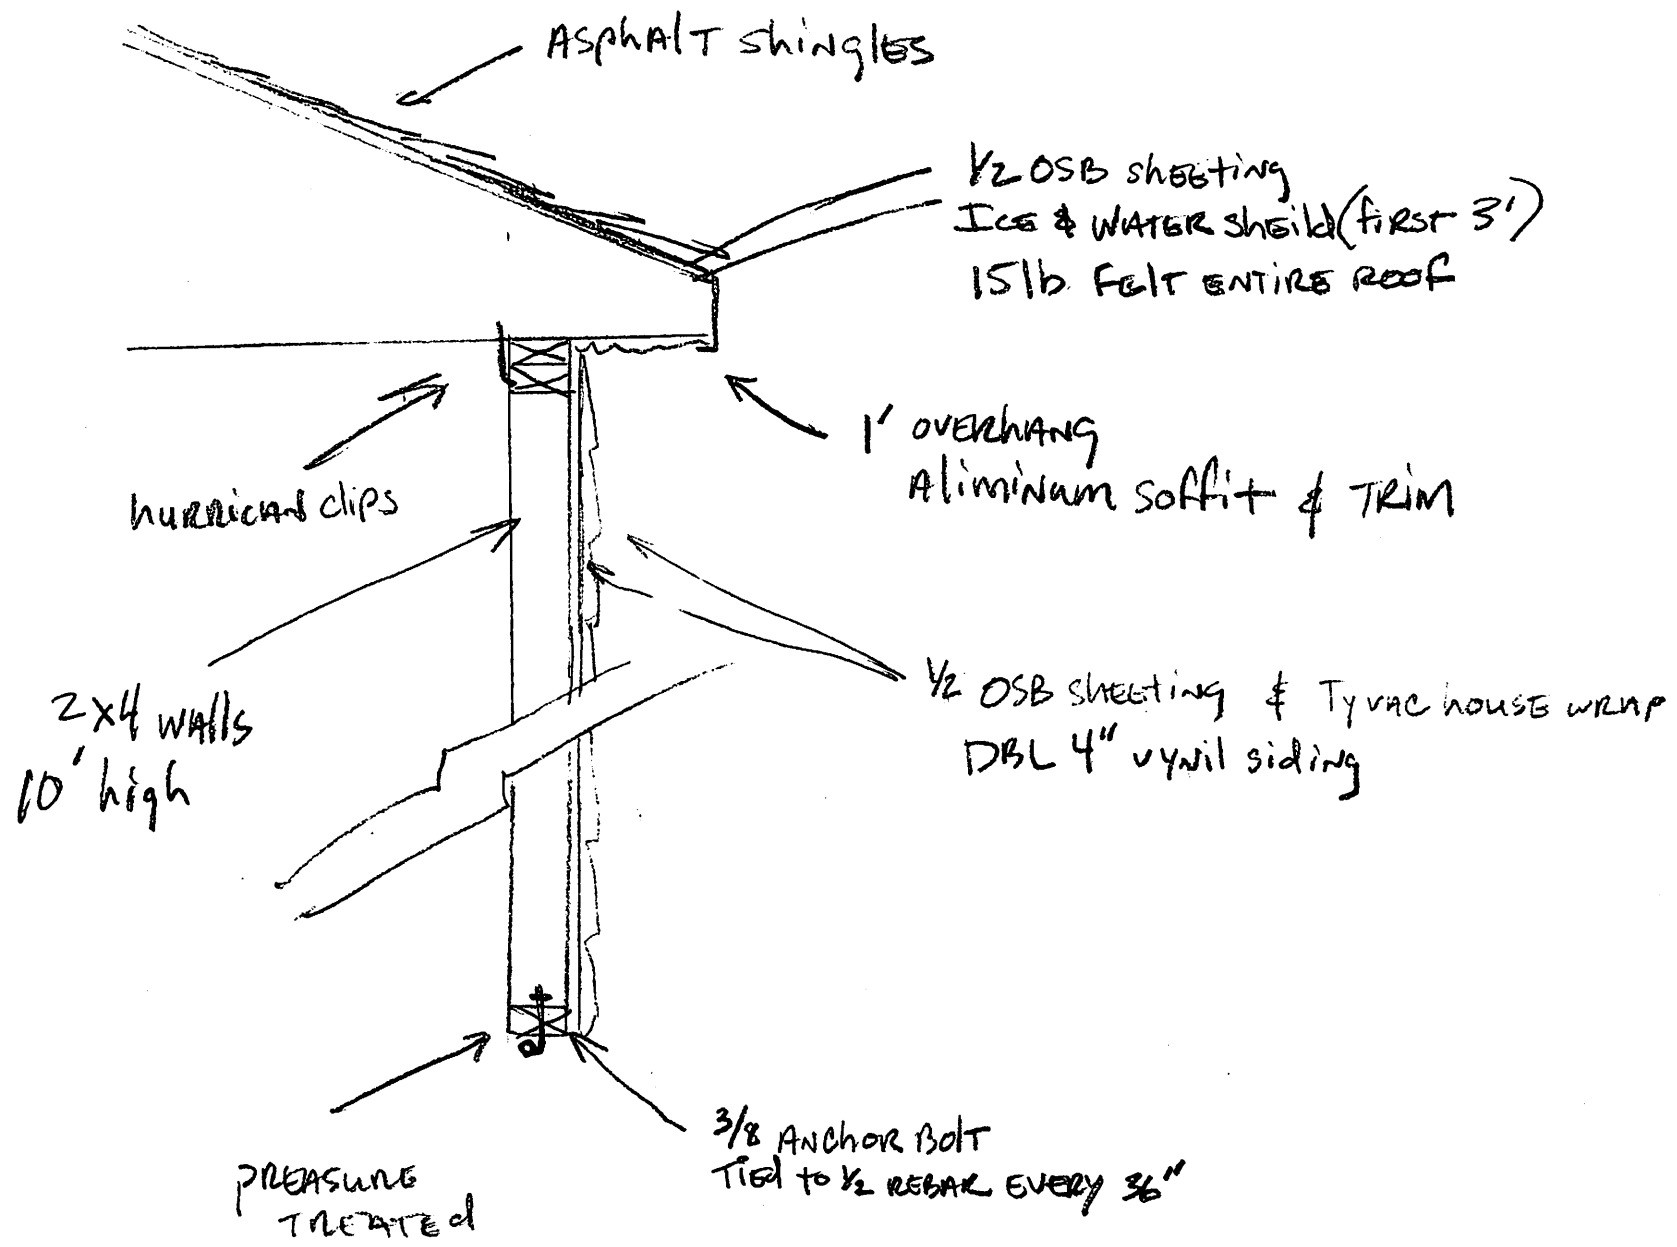 Asphalt shingles
1/2 OSB sheeting
Ice & water sheild (first 3')
15lb. felt entire roof
1' overhang
Aliminum soffit & trim
hurrican clips
2x4 walls
10' high
1/2 OSB sheeting & Tyvac house wrap
DBL 4" vynil siding
3/8 Anchor Bolt
Tied to 1/2 rebar every 36"
preasure
treated